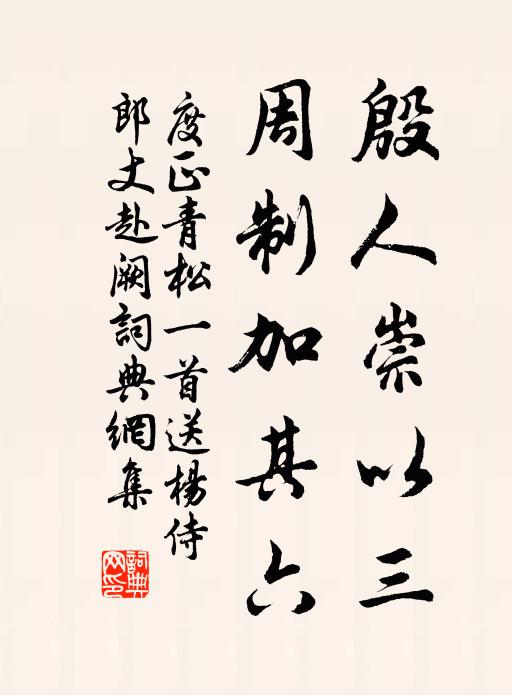 殷人崇以三
周制加其六
度正青松一首送楊侍
郎丈赴阙詞典網集
詞典
网印